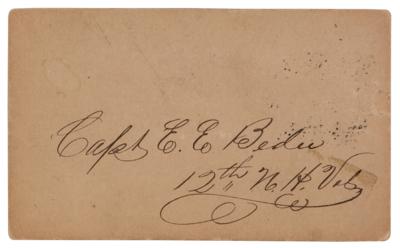 Capt E. E. Bedee
12th N. H. Vols